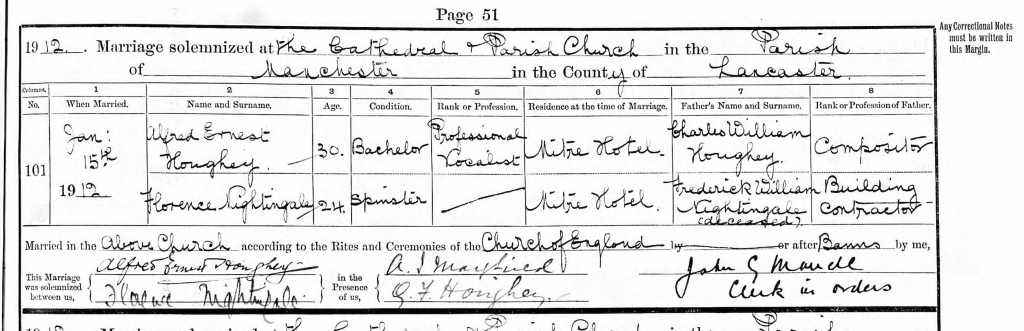 Page 51
Any Correctional Notes
must be written in
this Margin.
1912. Marriage solemnized at the Cathedral & Parish Church in the Parish
of Manchester in the County of Lancaster.
Columns. 1 2 3 4 5 6 7 8
No. When Married. Name and Surname. Age. Condition. Rank or Profession. Residence at the time of Marriage. Father's Name and Surname. Rank or Profession of Father.
101
Jan: 15th 1912
Alfred Ernest Houghey. 30. Bachelor Professional Vocalist Mitre Hotel. Charles William Houghey. Compositor
Florence Nightingale 24. Spinster — Mitre Hotel. Frederick William Nightingale (deceased). Building Contractor
Married in the Above Church according to the Rites and Ceremonies of the Church of England by or after Banns by me,
This Marriage was solemnized between us,
Alfred Ernest Houghey
Florence Nightingale.
in the Presence of us,
A. J. Mayfield
G. F. Houghey.
John G Maude
Clerk in orders
1912. Marriage solemnized at the Cathedral & Parish Church in the Parish